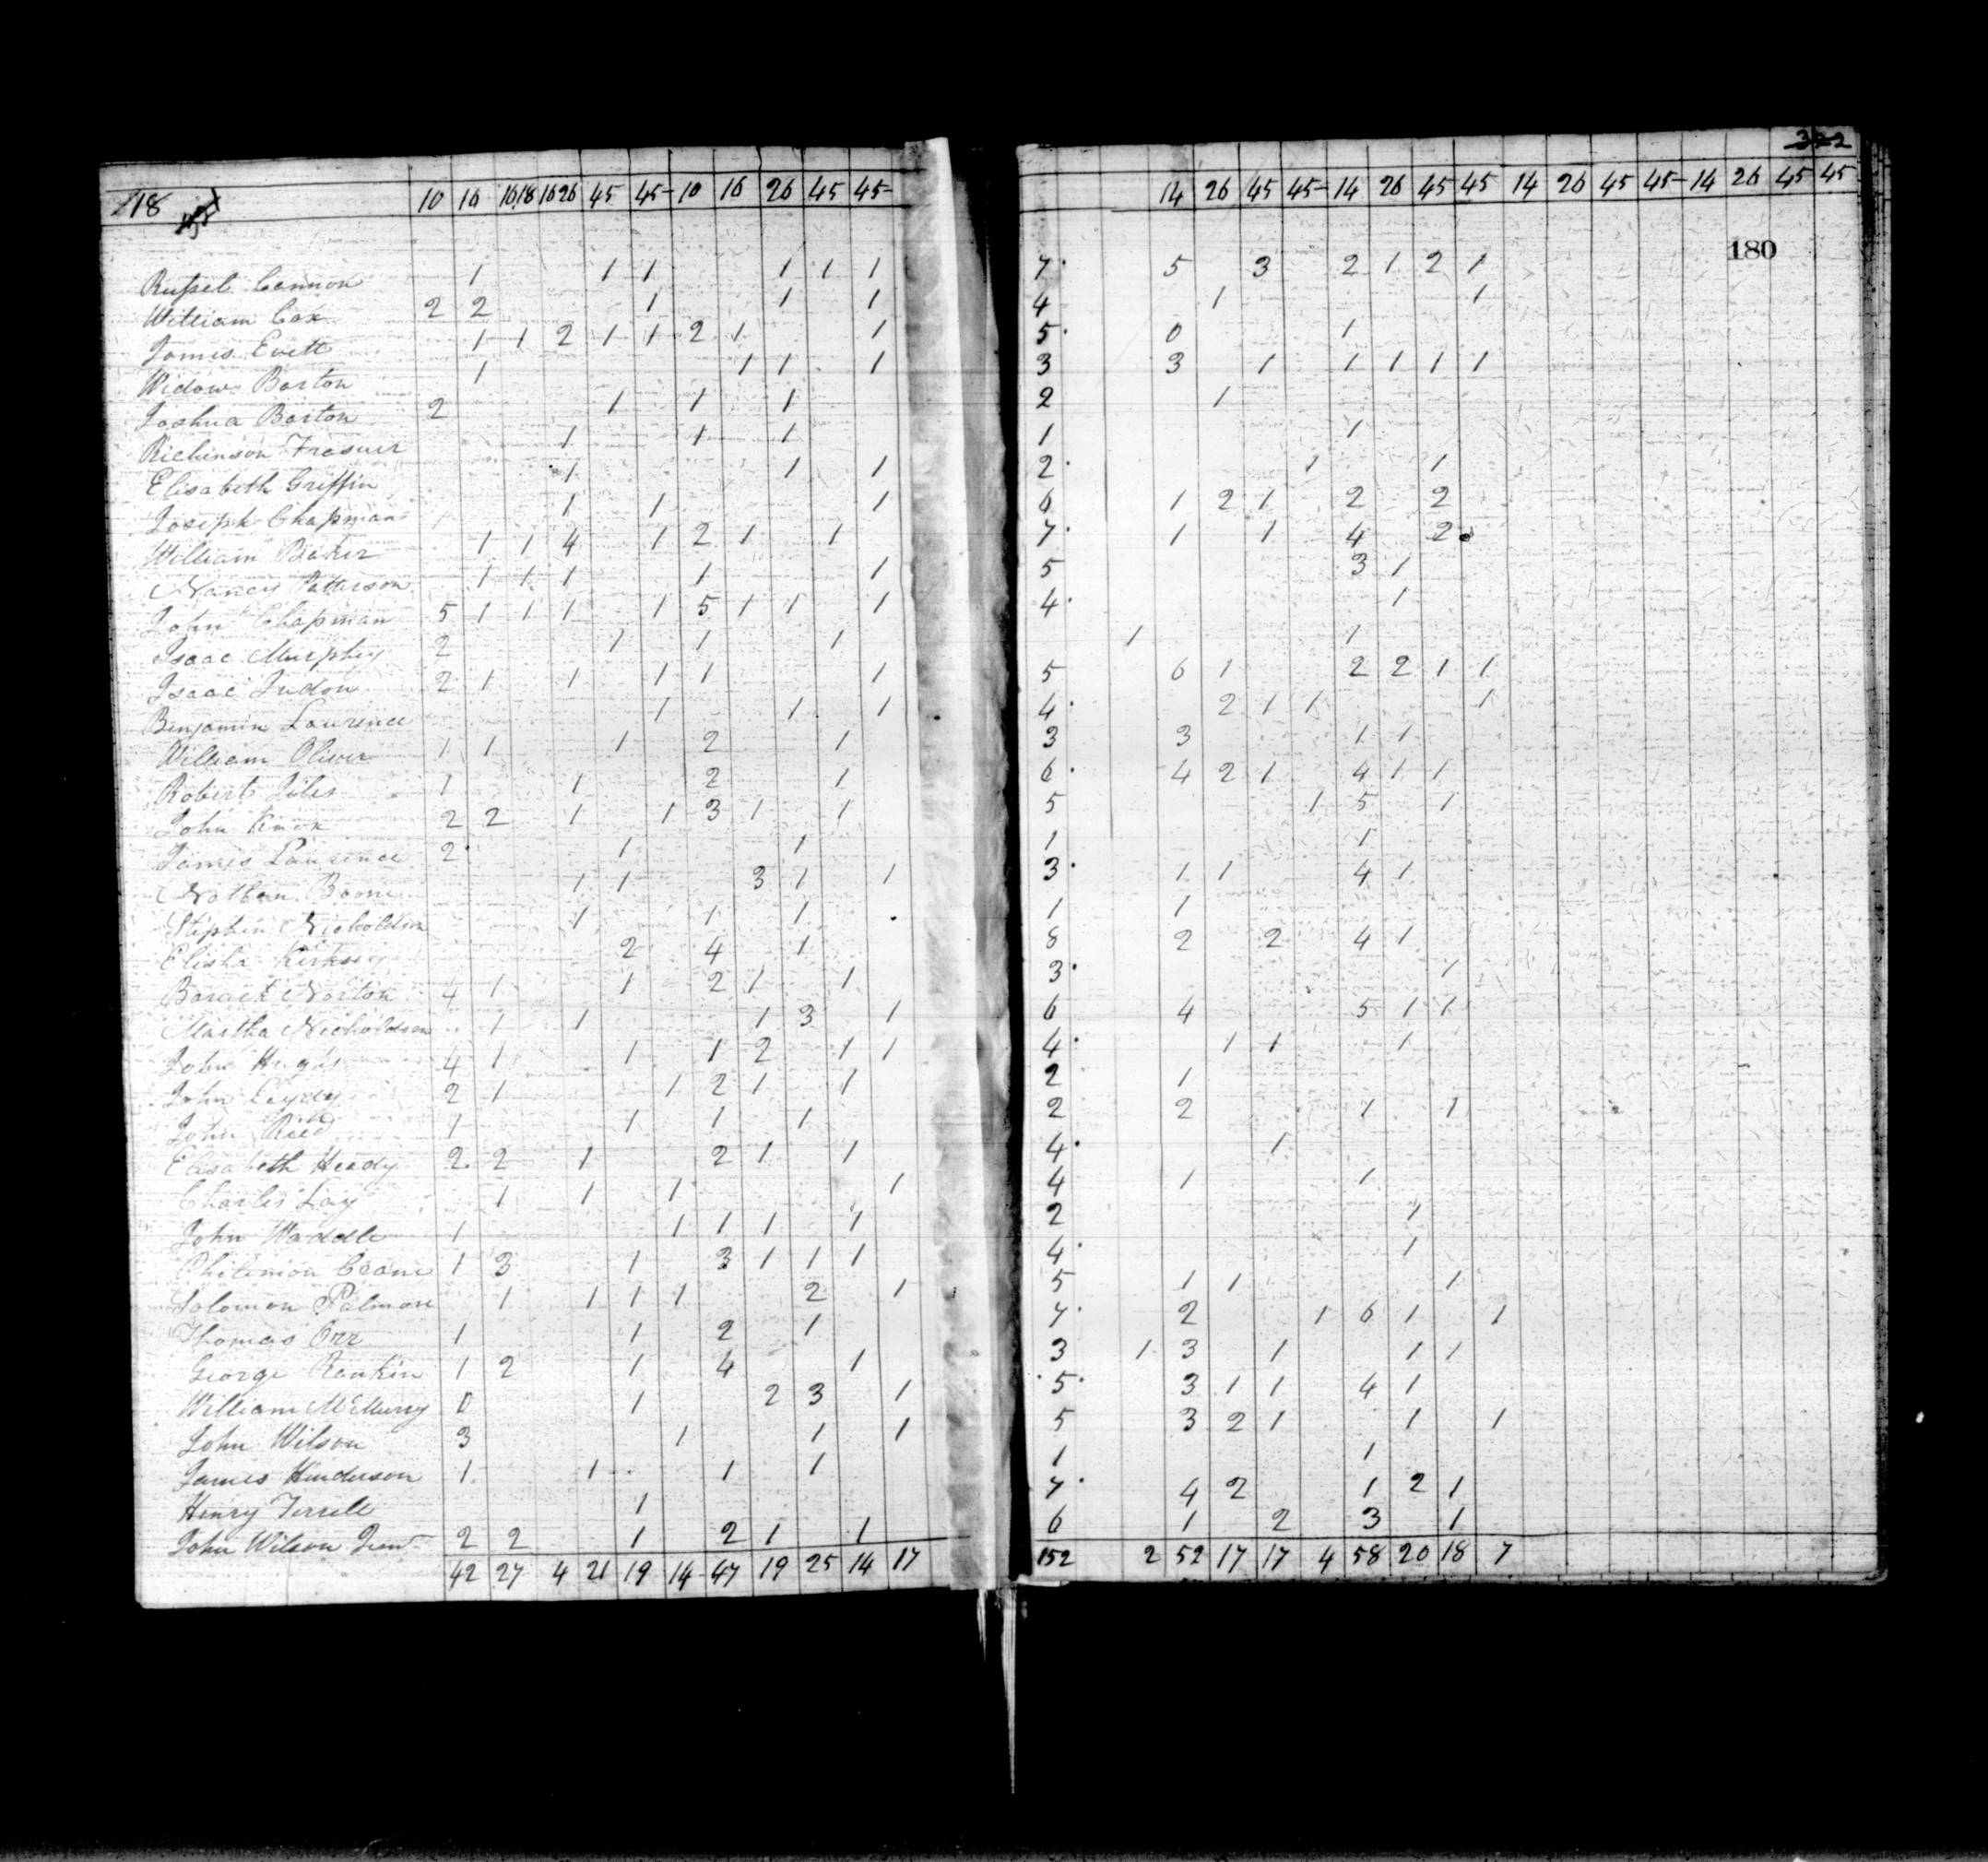 118
10 16 16,18 16 26 45 45- 10 16 26 45 45-
Russel Cannon 1 1 1 1 1 1
William Cox 2 2 1 1 1
James Evett 1 1 2 1 1 2 1 1
Widow Barton 1 1 1 1
Joshua Barton 2 1 1 1
Richinson 1 1 1
Elisabeth Griffin 1 1 1
Joseph Chapman 1 1 1
William Baker 1 1 4 1 2 1 1
Nancy Patterson 1 1 1 1 1
John Chapman 5 1 1 1 1 5 1 1 1
Isaac Murphey 2 1 1 1
Isaac 2 1 1 1 1 1
Benjamin Laurence 1 1 1
William Oliver 1 1 1 2 1
Robert Jiles 1 1 2 1
John Knox 2 2 1 1 3 1 1
James Laurence 2 1 1
Nathan Boone 1 1 3 1 1
Stephen Nicholdson 1 1 1
Elisha Kirksey 2 4 1
Barack Norton 4 1 1 2 1 1
Martha Nicholdson 1 1 1 3 1
John Hughs 4 1 1 1 2 1 1
John 2 1 1 2 1 1
John 1 1 1 1
Elisabeth Hendy 2 2 1 2 1 1
Charles Lay 1 1 1 1
John Waddle 1 1 1 1 1
Philemon 1 3 1 3 1 1 1
Solomon Palmore 1 1 1 1 2 1
Thomas Orr 1 1 2 1
George Rankin 1 2 1 4 1
William McMurry 0 1 2 3 1
John Wilson 3 1 1 1
James Henderson 1 1 1 1
Henry Terrell 1
John Wilson 2 2 1 2 1 1
42 27 4 21 19 14 47 19 25 14 17
322
14 26 45 45- 14 26 45 45 14 26 45 45- 14 26 45 45
180
7 5 3 2 1 2 1
4 1 1
5 0 1
3 3 1 1 1 1 1
2 1
1 1
2 1 1
6 1 2 1 2 2
7 1 1 4 2
5 3 1
4 1
1 1
5 6 1 2 2 1 1
4 2 1 1 1
3 3 1 1
6 4 2 1 4 1 1
5 1 5 1
1 1
3 1 1 4 1
1 1
8 2 2 4 1
3 1
6 4 5 1 1
4 1 1 1
2 1
2 2 1 1
4 1
4 1 1
2 1
4 1
5 1 1 1
7 2 1 6 1 1
3 1 3 1 1 1
5 3 1 1 4 1
5 3 2 1 1 1
1 1
7 4 2 1 2 1
6 1 2 3 1
152 2 52 17 17 4 58 20 18 7